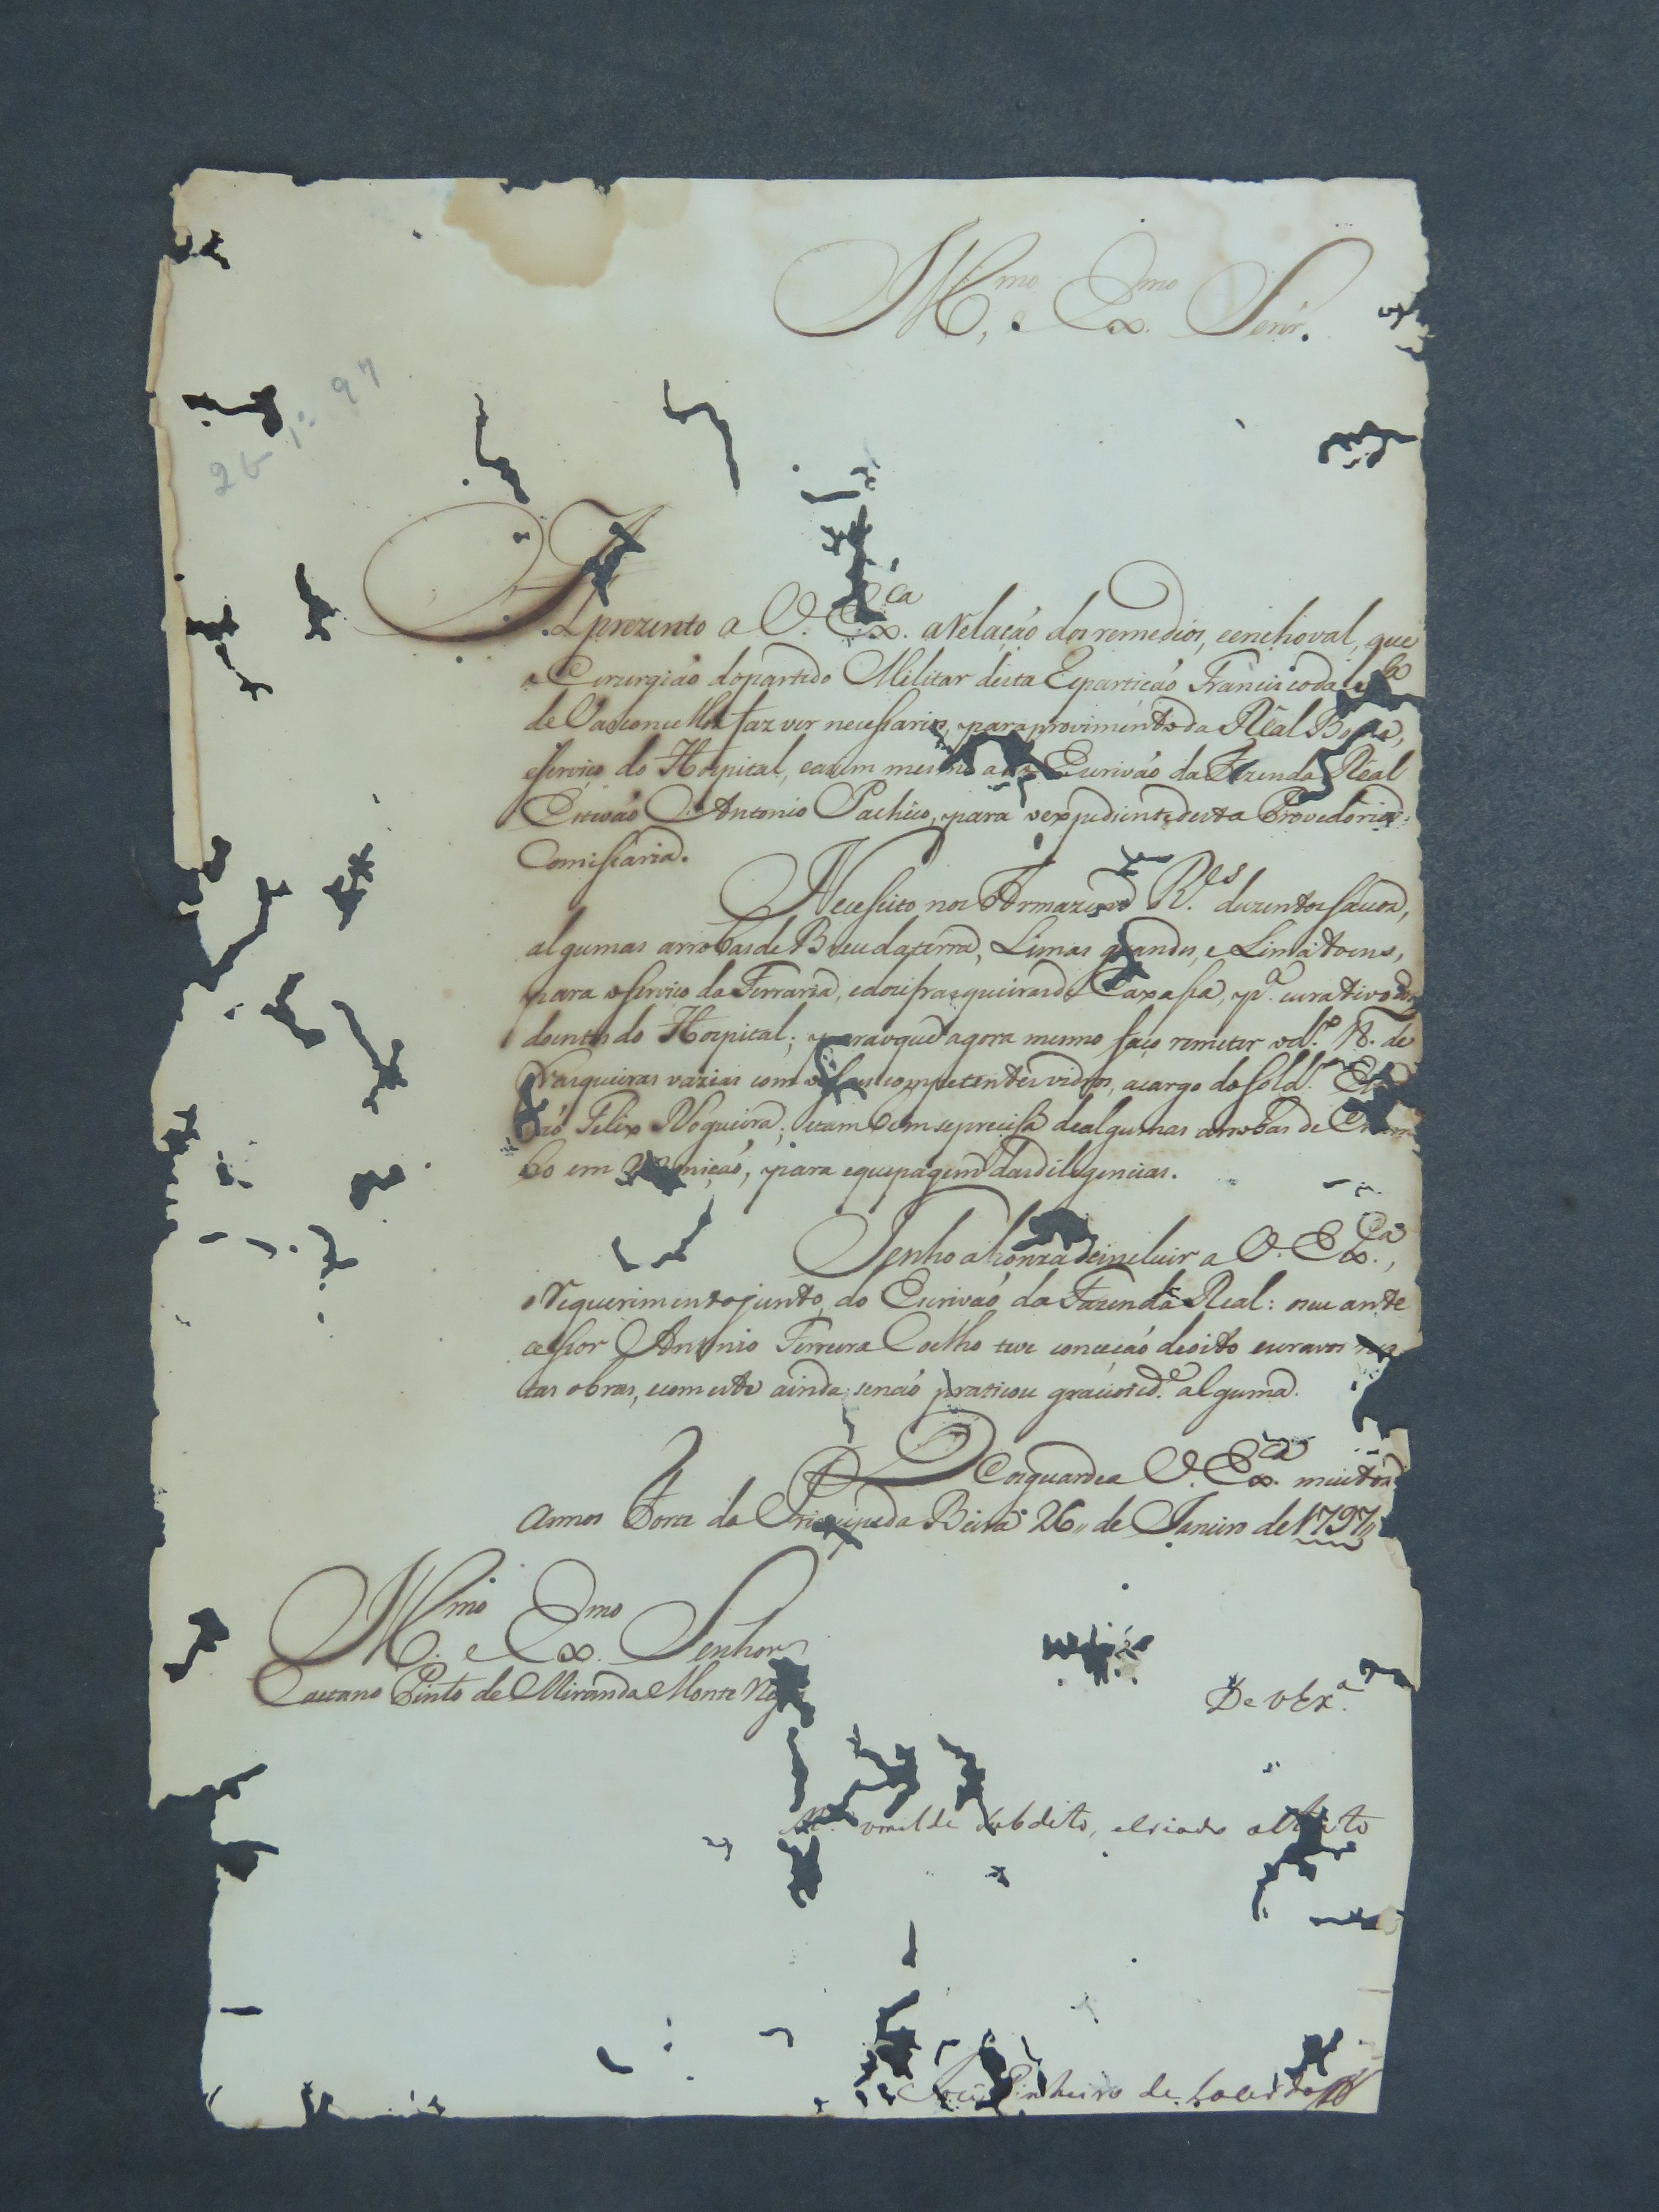 Ill.mo e Ex.mo Senr.
26 1º 97
Aprezento a V. Ex.ca a relação dos remedios, e enchoval, que
o Cirurgião do partido Militar desta Repartição Francisco da
de Vasconcellos faz ver necessarios, para provimento da Real Botica,
e serviço do Hospital, e asim mesmo a do Escrivão da Fazenda Real
Estevão Antonio Pacheco, para o expediente desta Provedoria
Comissaria.
Necessito nos Armazens R.es duzentos sacos,
algumas arrobas de Breu da terra, Limas grandes, e Limatoens,
para o serviço da Ferraria, e dois frasqueiras de Caxassa, p.a curativo dos
doentes do Hospital; para o que agora mesmo faço remeter o d.o N. de
Frasqueiras vazias com os seus competentes vidros, a cargo do Sold.o
Felix Nogueira; e tambem se precisa de algumas arrobas de Chum
bo em munição, para equipagem das diligencias.
Tenho a honra de incluir a V. Ex.ca,
o requerimento junto do Escrivão da Fazenda Real: o seu ante
cessor Antonio Ferreira Coelho teve concessão de oito escravos
tas obras, e com este ainda senão praticou graciosid.e alguma.
Deos guarde a V. Ex.ca muitos
annos Forte do Principe da Beira 26 de Janeiro de 1797
Ill.mo e Ex.mo Senhor
Caetano Pinto de Miranda Monte Negro
De V Ex.a
M.to umilde subdito, e criado
José Pinheiro de Lacerda